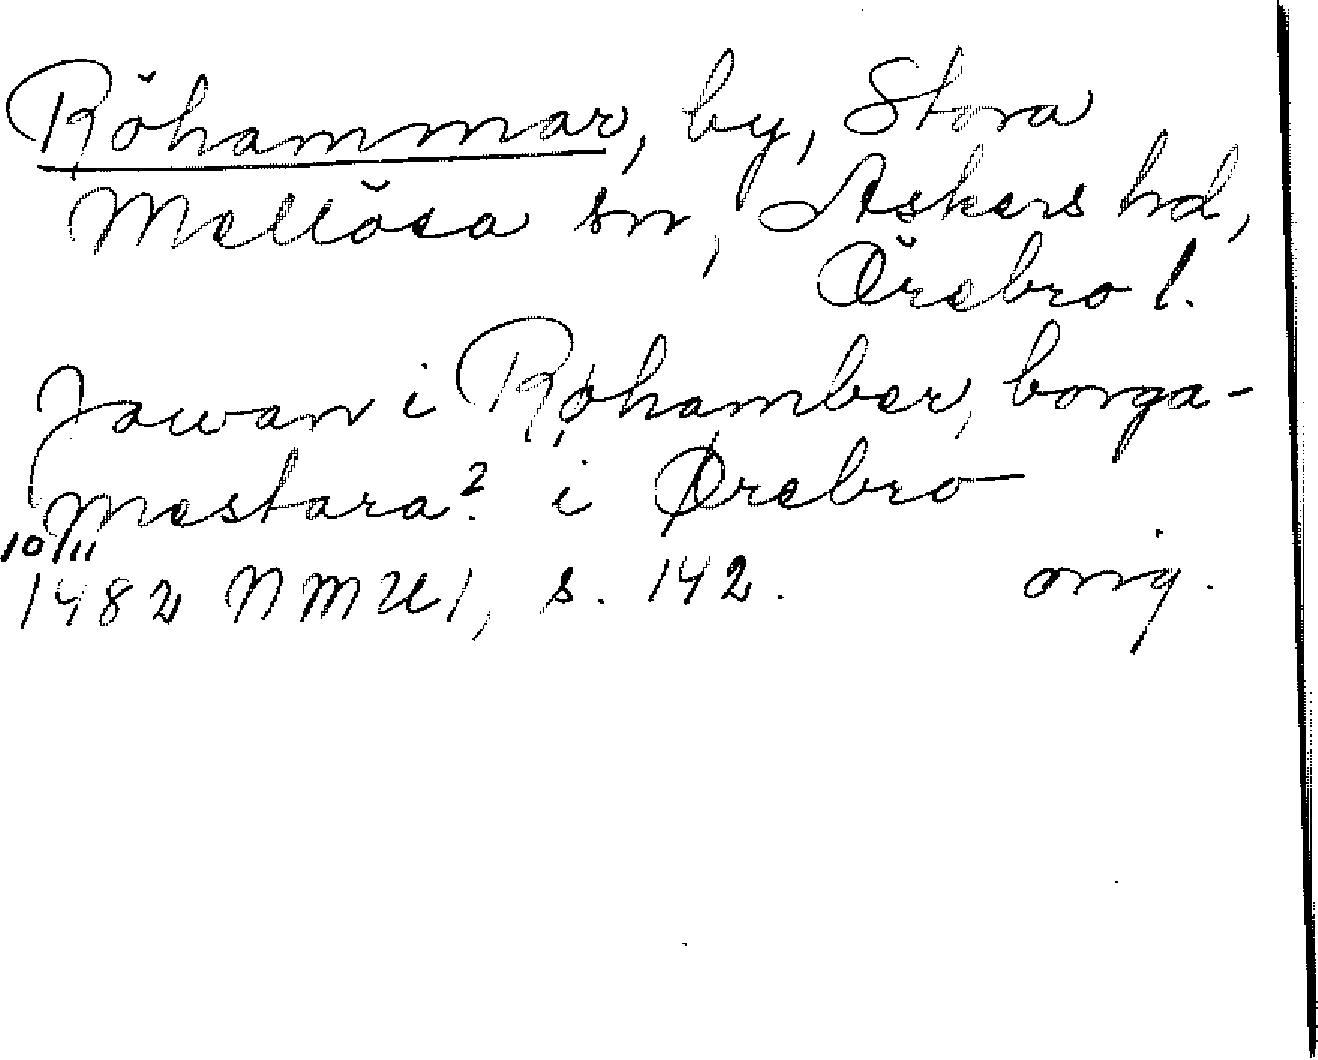 Röhammar, by, Stora
Mellösa sn, Askers hd,
Örebro l.
Jowan i Røhamber, borga-
mestara? i Ørebro
10/11
1482 NMU 1, s. 142. orig.